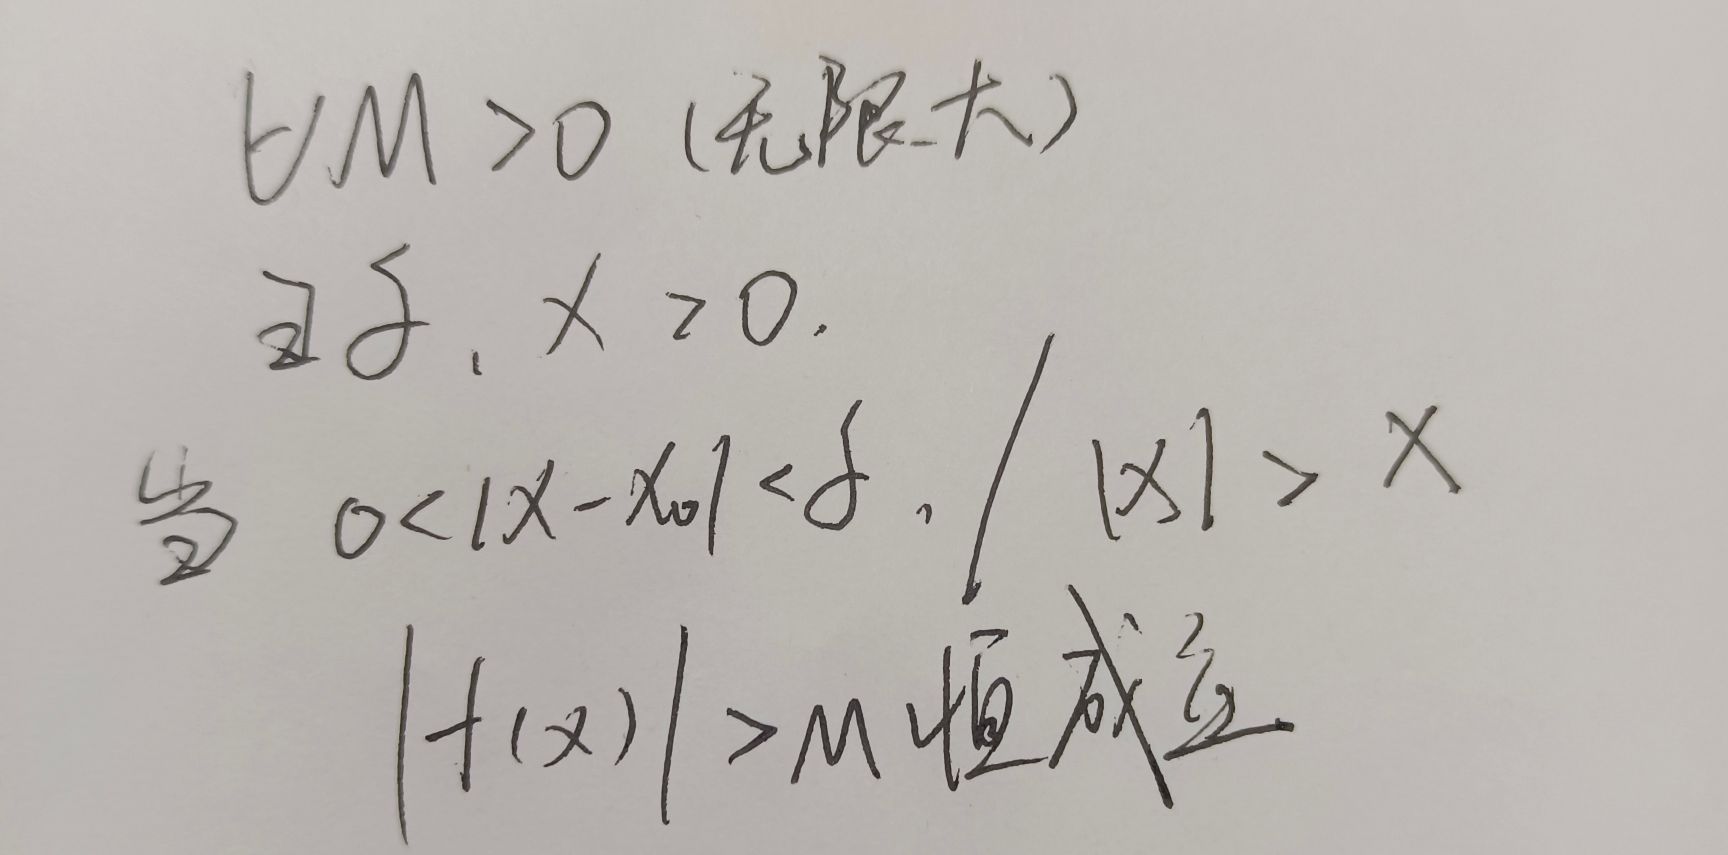 ∀M>0 (无限大)
∃δ, X>0.
当 0<|x-x₀|<δ, / |x|>X
|f(x)|>M 恒成立